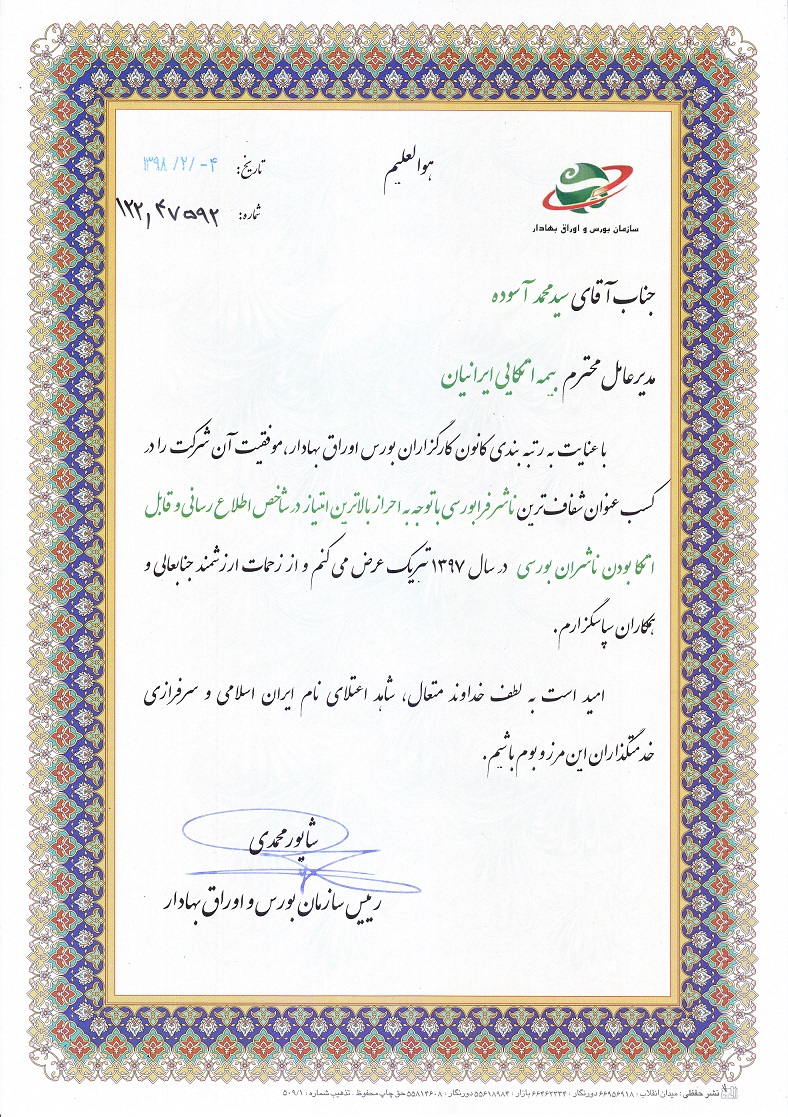 هوالعلیم
تاریخ: ۱۳۹۸/۲/-۴
شماره: ۱۲۲,۴۷۵۹۲
سازمان بورس و اوراق بهادار
جناب آقای سیدمحمد آسوده
مدیرعامل محترم بیمه اتکایی ایرانیان
با عنایت به رتبه بندی کانون کارگزاران بورس اوراق بهادار، موفقیت آن شرکت را در
کسب عنوان شفاف ترین ناشر فرابورسی با توجه به احراز بالاترین امتیاز در شاخص اطلاع رسانی و قابل
اتکا بودن ناشران بورسی در سال ۱۳۹۷ تبریک عرض می کنم و از زحمات ارزشمند جنابعالی و
همکاران سپاسگزارم.
امید است به لطف خداوند متعال، شاهد اعتلای نام ایران اسلامی و سرفرازی
خدمتگذاران این مرز و بوم باشیم.
شاپور محمدی
رییس سازمان بورس و اوراق بهادار
نشر حفظی: میدان انقلاب: ۶۶۹۵۶۹۱۸ دورنگار: ۶۶۴۶۲۳۳۴ بازار: ۵۵۶۱۸۹۸۴ دورنگار: ۵۵۸۱۴۶۰۸ حق چاپ محفوظ. تذهیب شماره: ۵۰۹/۱